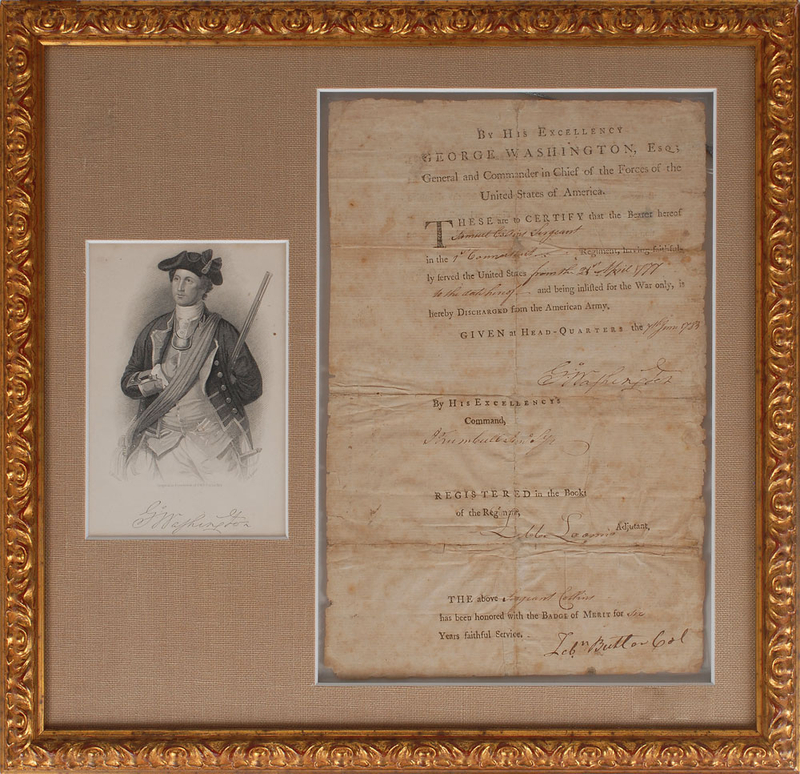 By His Excellency
GEORGE WASHINGTON, Esq;
General and Commander in Chief of the Forces of the
United States of America.
THESE are to CERTIFY that the Bearer hereof
Samuel Collins Sergeant
in the 1st Connecticut Regiment, having faithful-
ly served the United States from the 26 April 1777
to the date hereof and being inlisted for the War only, is
hereby Discharged from the American Army.
GIVEN at Head-Quarters the June 1783
Go Washington
By His Excellency's
Command,
J Trumbull Junr
REGISTERED in the Books
of the Regiment,
Libbe Loomis Adjutant,
THE above Sergeant Collins
has been honored with the Badge of Merit for six
Years faithful Service.
Zebn Butler Col
Go Washington